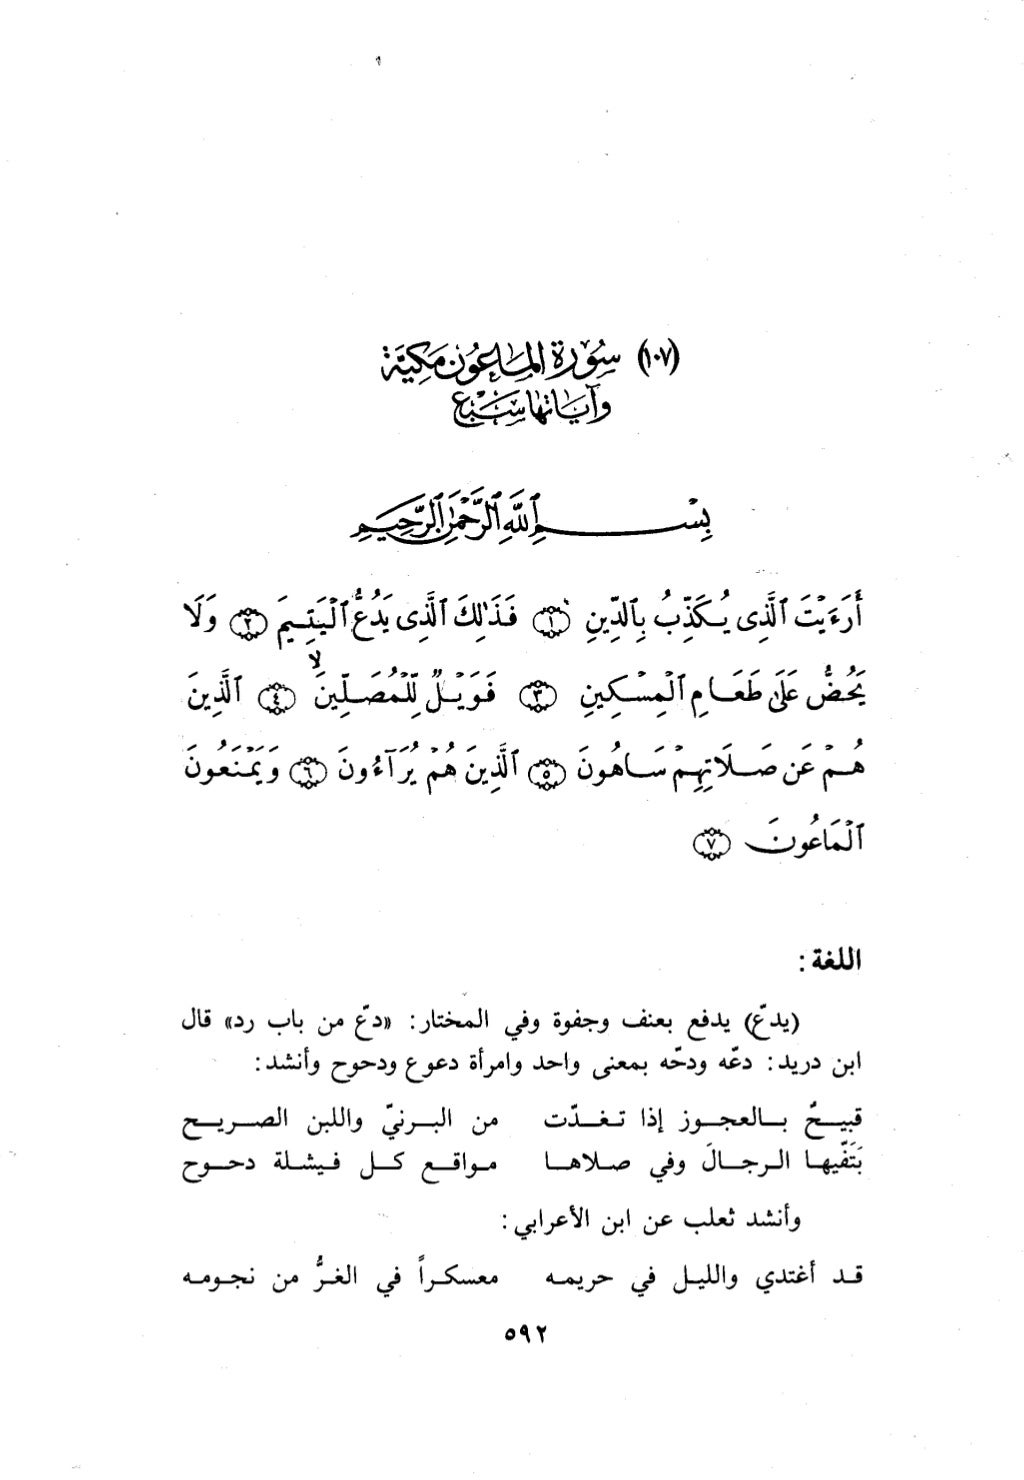 (١٠٧) سُورَة المَاعُون مَكيَّة
وآيَاتهَا سَبْع
بِسْمِ ٱللَّهِ ٱلرَّحْمَٰنِ ٱلرَّحِيمِ
أَرَءَيْتَ ٱلَّذِى يُكَذِّبُ بِٱلدِّينِ ۝١ فَذَٰلِكَ ٱلَّذِى يَدُعُّ ٱلْيَتِيمَ ۝٢ وَلَا
يَحُضُّ عَلَىٰ طَعَامِ ٱلْمِسْكِينِ ۝٣ فَوَيْلٌ لِّلْمُصَلِّينَ ۝٤ ٱلَّذِينَ
هُمْ عَن صَلَاتِهِمْ سَاهُونَ ۝٥ ٱلَّذِينَ هُمْ يُرَآءُونَ ۝٦ وَيَمْنَعُونَ
ٱلْمَاعُونَ ۝٧
اللغة:
(يدعّ) يدفع بعنف وجفوة وفي المختار: «دعّ من باب رد» قال
ابن دريد: دعّه ودحّه بمعنى واحد وامرأة دعوع ودحوح وأنشد:
قبيحٌ بالعجوز إذا تغدّت من البرنيّ واللبن الصريح
بَتَفّيها الرجالَ وفي صلاها مواقع كل فيشلة دحوح
وأنشد ثعلب عن ابن الأعرابي:
قد أغتدي والليل في حريمه معسكراً في الغرُّ من نجومه
٥٩٢